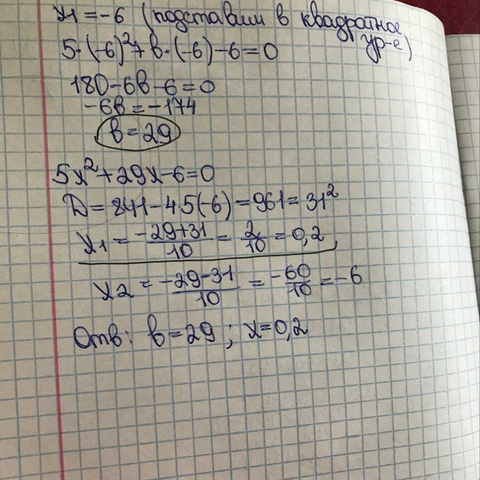 x1 = -6 (подставим в квадратное
ур-е)
5·(-6)²+в·(-6)-6=0
180-6в-6=0
-6в=-174
в=29
5x²+29x-6=0
D=841-4·5(-6)=961=31²
x1 = -29+31/10 = 2/10 = 0,2
x2 = -29-31/10 = -60/10 = -6
Отв: в=29 ; x=0,2